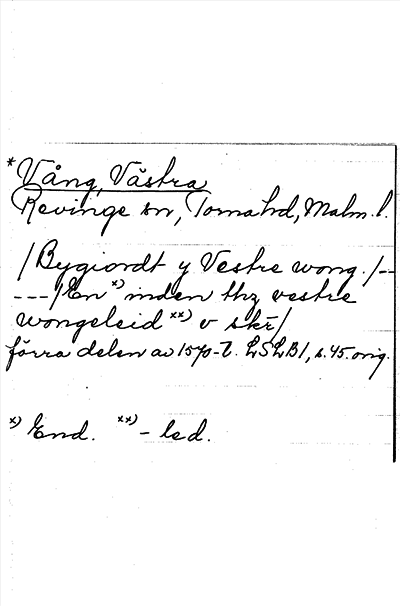 *Vång, Västra
Revinge sn, Torna hd, Malm. l.
/Bygiordt y Vestre wong./--
---/En x) inden thz vestre
wongeleid xx) v skr̄/
förra delen av 1570-t. LSLB1, s.45. orig.
x) End. xx) - led.